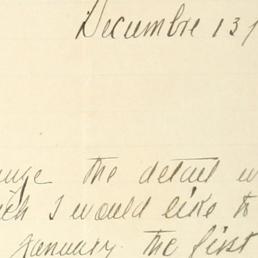 Decembre 13
the detail
I would like to
January. the first